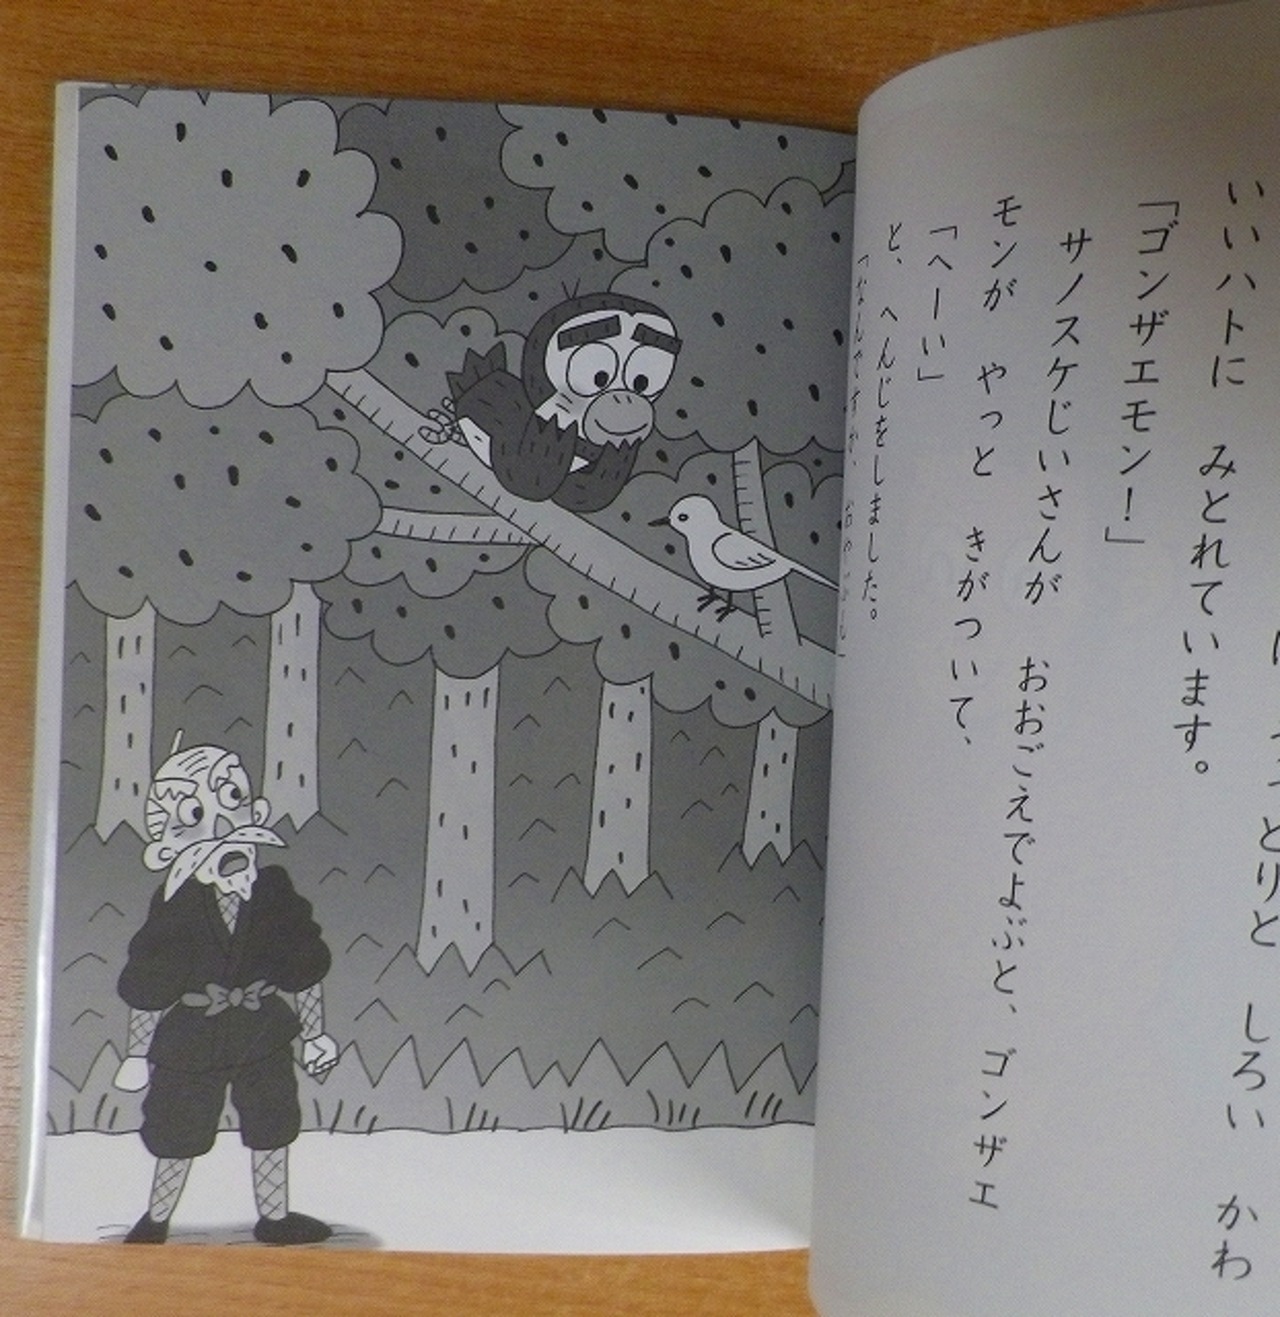 とりと　しろい　かわ
いいハトに　みとれています。
「ゴンザエモン！」
サノスケじいさんが　おおごえでよぶと、ゴンザエ
モンが　やっと　きがついて、
「へーい」
と、へんじをしました。
「なんですか、おやぶん」